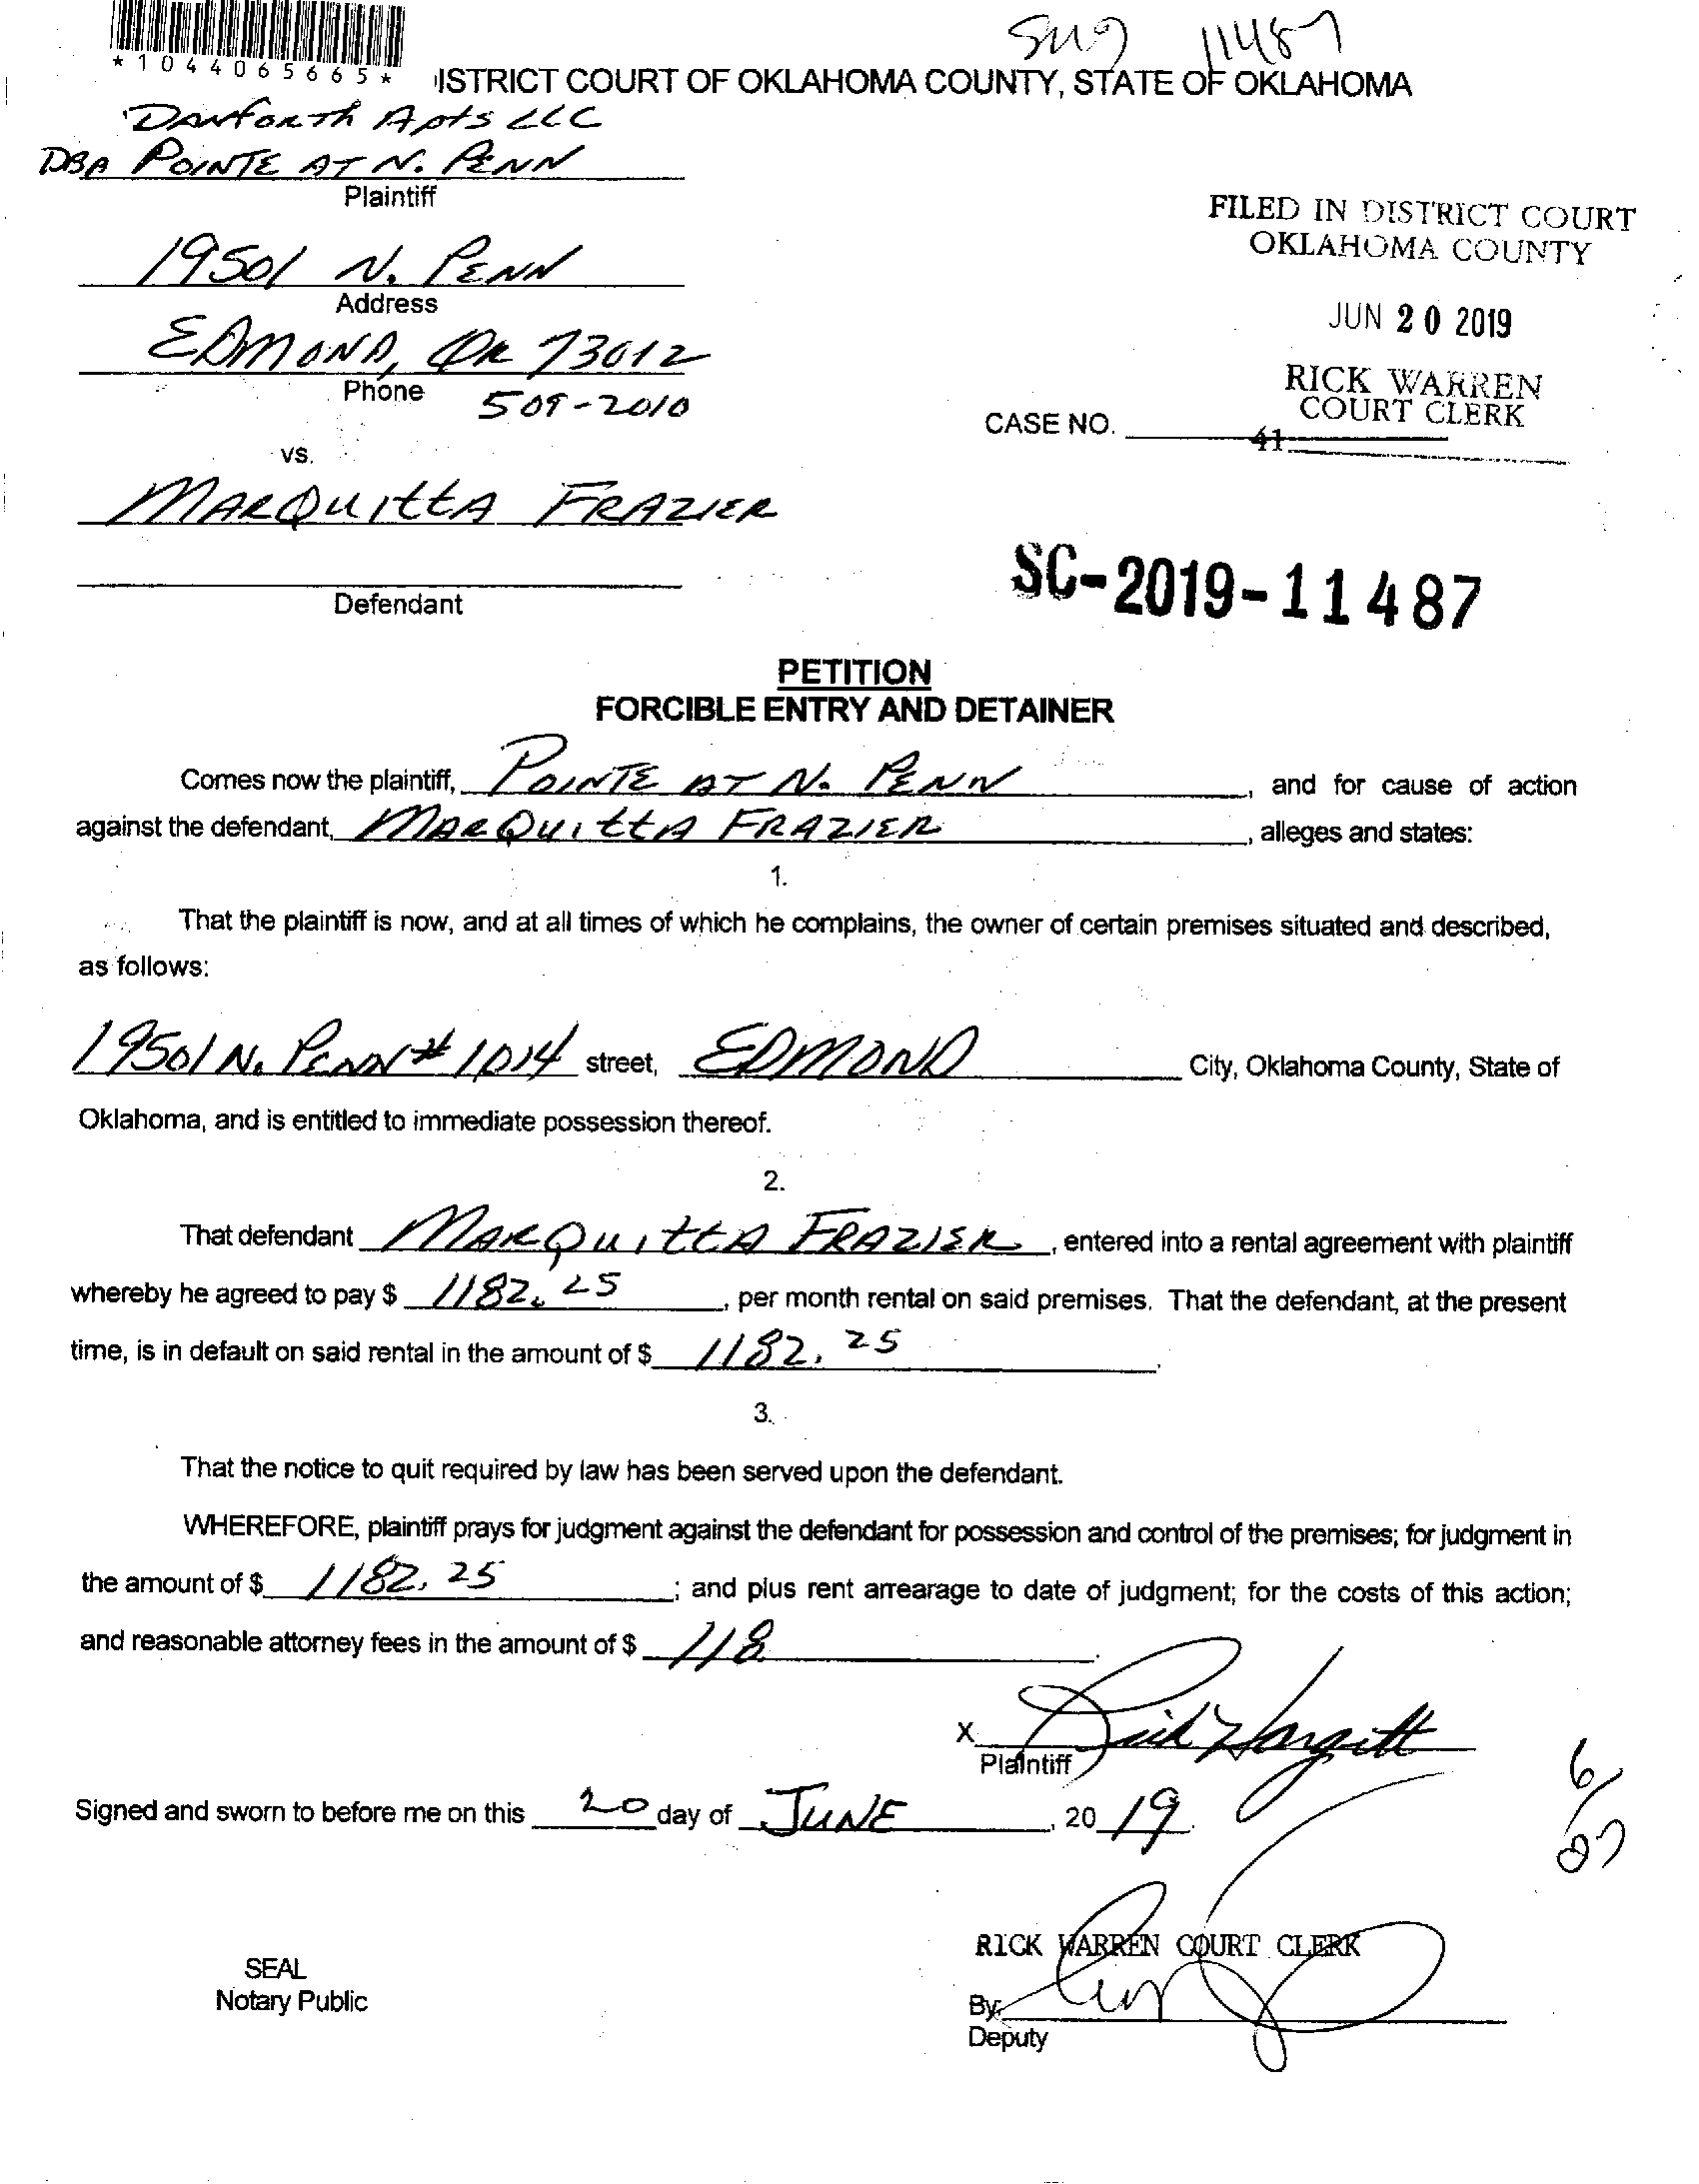 *1044065665*
11487
ISTRICT COURT OF OKLAHOMA COUNTY, STATE OF OKLAHOMA
DANFORTH APTS LLC
DBA POINTE AT N. PENN
Plaintiff
19501 N. PENN
Address
EDMOND, OK 73012
Phone 509-2010
FILED IN DISTRICT COURT
OKLAHOMA COUNTY
JUN 20 2019
RICK WARREN
COURT CLERK
CASE NO.
41
vs.
MARQUITTA FRAZIER
Defendant
SC-2019-11487
PETITION
FORCIBLE ENTRY AND DETAINER
Comes now the plaintiff, POINTE AT N. PENN, and for cause of action
against the defendant, MARQUITTA FRAZIER, alleges and states:
1.
That the plaintiff is now, and at all times of which he complains, the owner of certain premises situated and described,
as follows:
19501 N. PENN # 1014 street, EDMOND City, Oklahoma County, State of
Oklahoma, and is entitled to immediate possession thereof.
2.
That defendant MARQUITTA FRAZIER, entered into a rental agreement with plaintiff
whereby he agreed to pay $ 1182.25, per month rental on said premises. That the defendant, at the present
time, is in default on said rental in the amount of $ 1182.25.
3.
That the notice to quit required by law has been served upon the defendant.
WHEREFORE, plaintiff prays for judgment against the defendant for possession and control of the premises; for judgment in
the amount of $ 1182.25; and plus rent arrearage to date of judgment; for the costs of this action;
and reasonable attorney fees in the amount of $ 118.
X
Plaintiff
Signed and sworn to before me on this 20 day of JUNE, 20 19.
6/27
RICK WARREN COURT CLERK
SEAL
Notary Public
By
Deputy